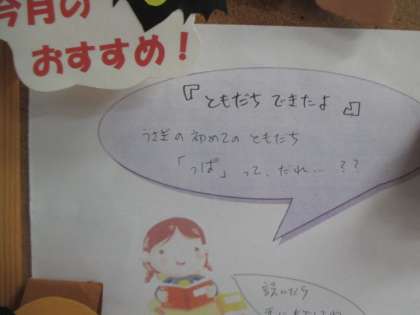 今月の
おすすめ！
『ともだち できたよ』
うさぎの初めての ともだち
「っぱ」って、だれ…??
読いだら